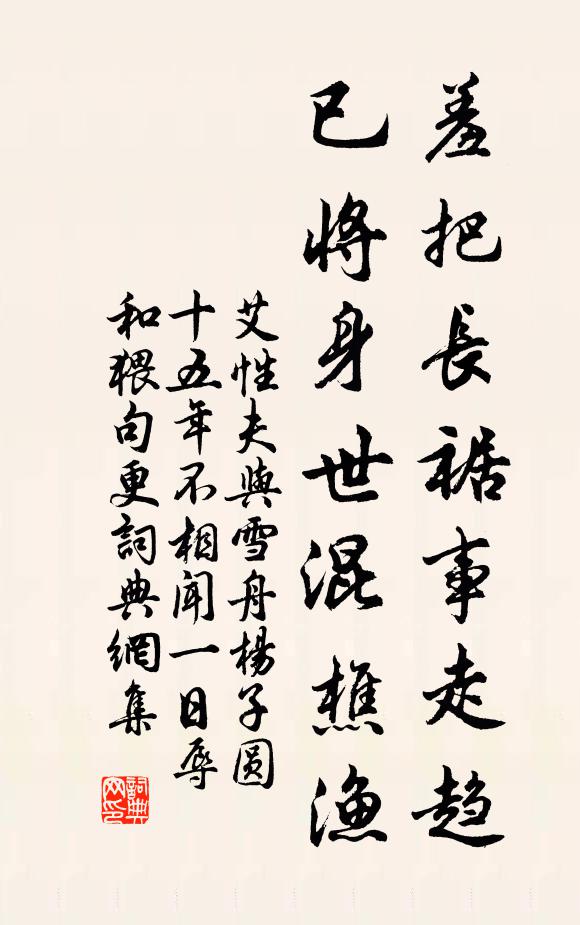 羞把長裾事走趋
已將身世混樵渔
艾性夫與雪舟楊子圆
十五年不相闻一日辱
和猥句更詞典網集
詞典网印